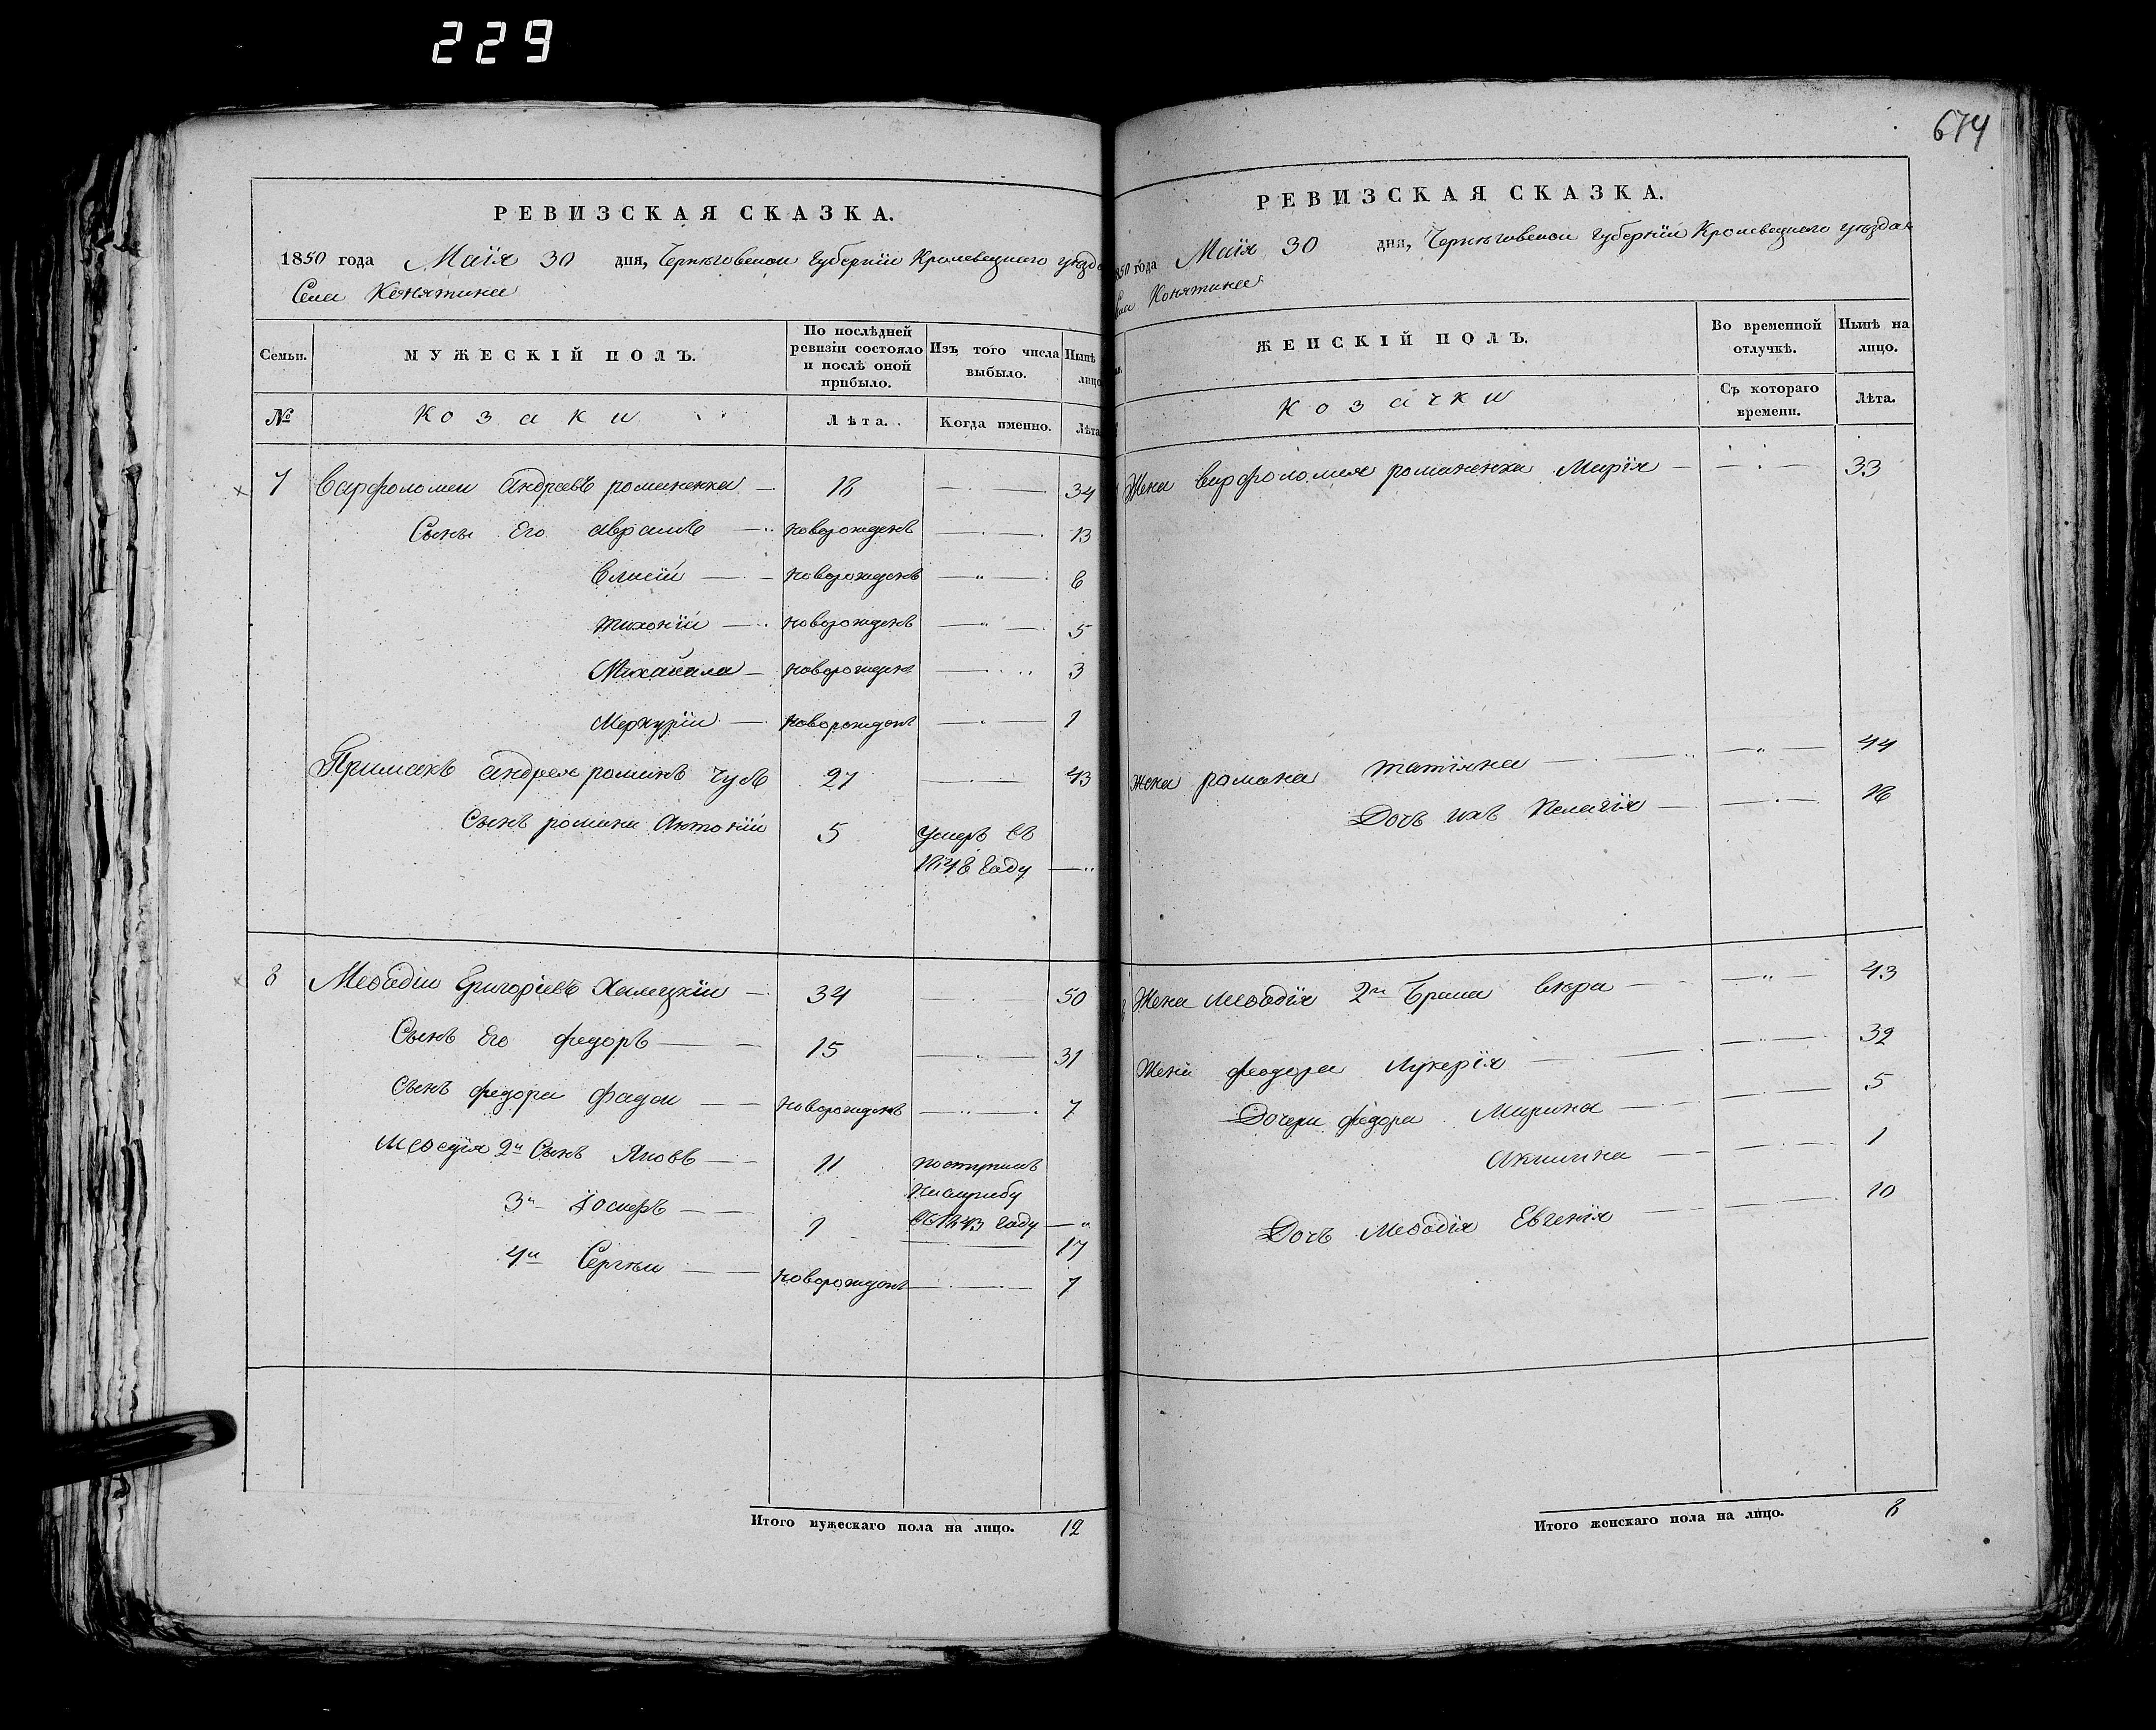 229
674
РЕВИЗСКАЯ СКАЗКА.
1850 года Маія 30 дня, Черниговской Губерніи Кролевецкого уезда
Села Конятина
Семьи.
МУЖЕСКІЙ ПОЛЪ.
По послѣдней ревизіи состояло и послѣ оной прибыло.
Изъ того числа выбыло.
Нынѣ лицо
№
Козаки
Лѣта.
Когда именно.
Лѣта
7 Варфоломеи Андреевъ романенка 18 34
Сыны Его Аврамъ новорожденъ 13
Елисій новорожденъ 6
Тихоній новорожденъ 5
Михайла новорожденъ 3
Меркуріи новорожденъ 1
Примакъ Андрея романъ Чубъ 27 43
Сынъ романа Антоній 5 Умеръ въ
1848 Году
8 Меѳодіи Григоріевъ Халецкіи 34 50
Сынъ Его федоръ 15 31
Сынъ федора Фадеи новорожденъ 7
Меѳодія 2й Сынъ Яковъ 11 поступилъ
на службу
въ 1843 году
3й Іосифъ 1 17
4й Сергѣи новорожденъ 7
Итого мужескаго пола на лицо. 12
РЕВИЗСКАЯ СКАЗКА.
1850 года Маія 30 дня, Черниговской Губерніи Кролевецкого уезда
Села Конятина
ЖЕНСКІЙ ПОЛЪ.
Во временной отлучкѣ.
Нынѣ на лицо.
Козачки
Съ котораго времени.
Лѣта.
Жена варфоломея романенка Марія 33
жена романа татіяна 44
Дочь ихъ Пелагія 18
Жена Меѳодія 2го Брака вера 43
Жена феодора Лукерія 32
Дочери федора Марина 5
Акилина 1
Дочь Меѳодія Евгенія 10
Итого женскаго пола на лицо. 8